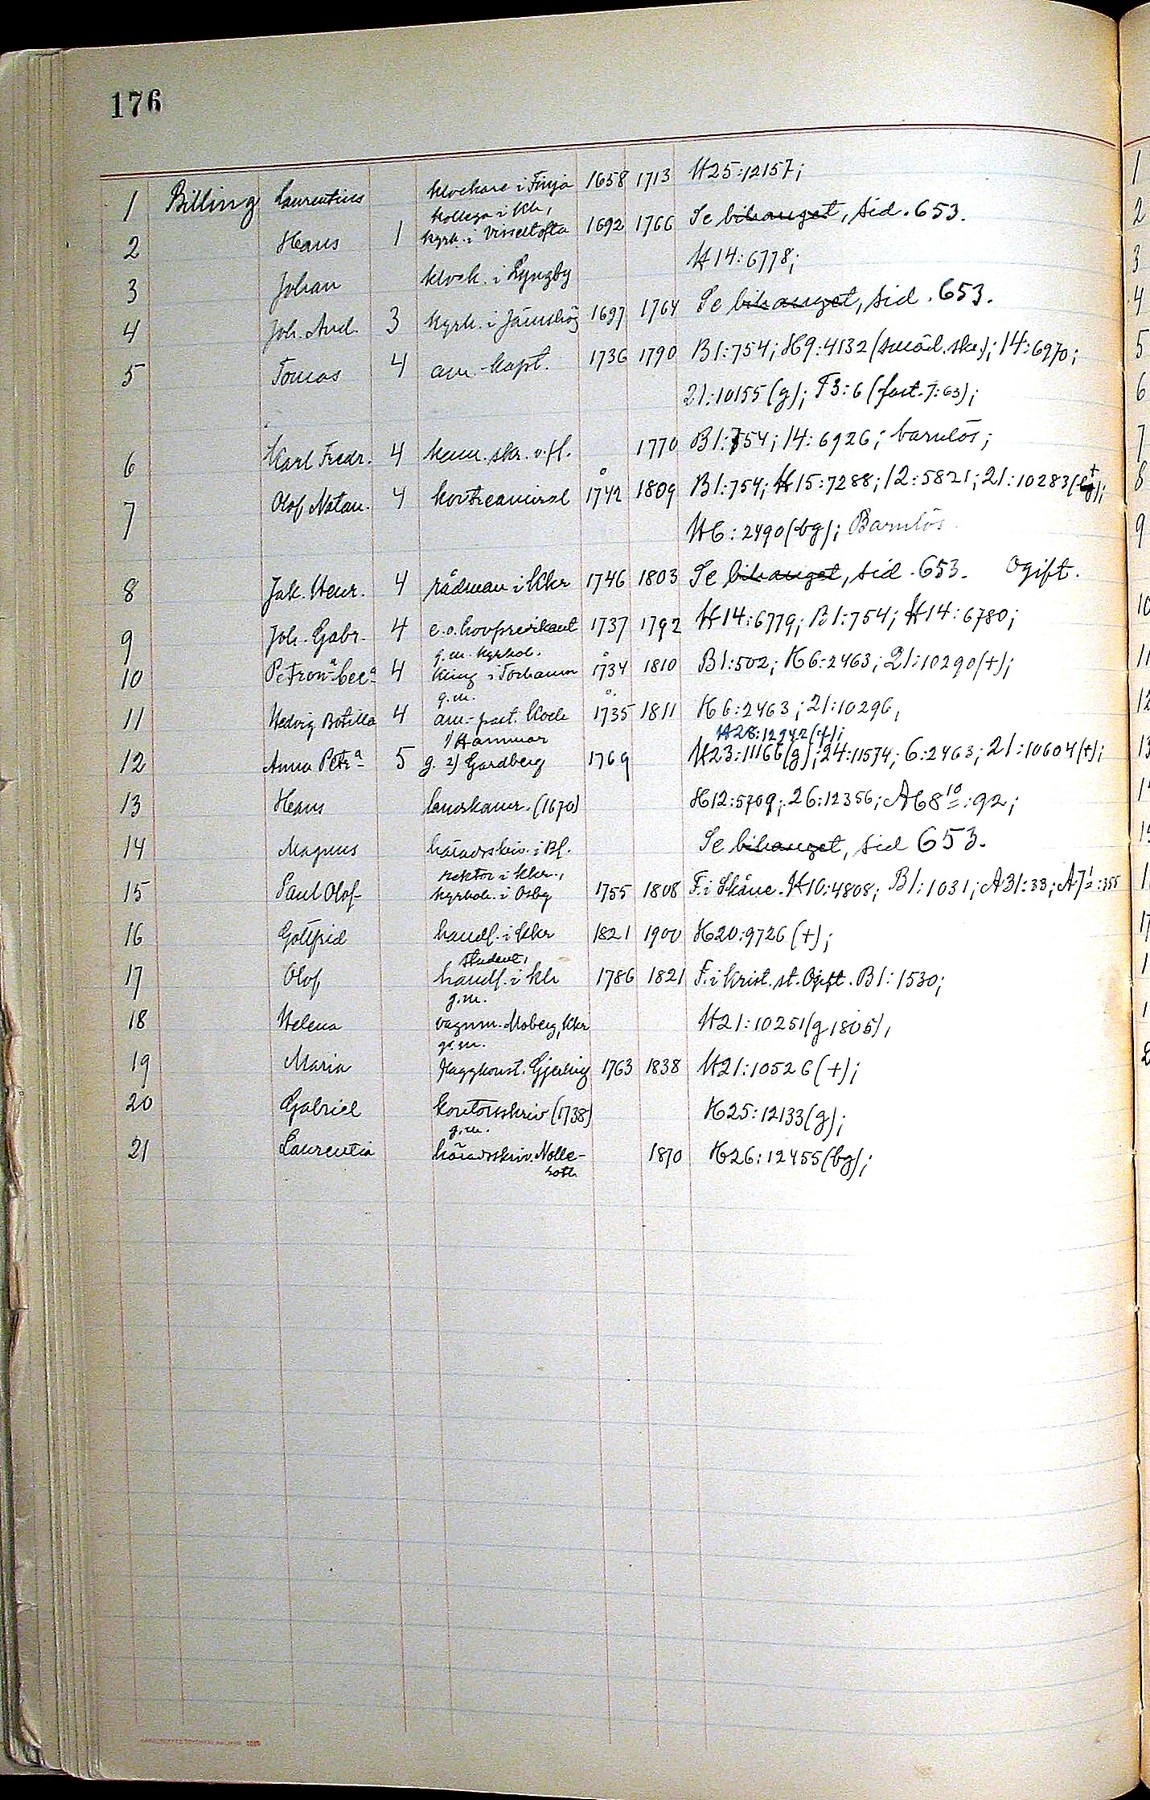 176
1 Billing Laurentius klockare i Finja 1658 1713 H25:12157;
kollega i Kr,
2 Hans 1 kyrk. i Visseltofta 1692 1766 Se bihanget, sid. 653.
3 Johan klock. i Lyngby H14:6778;
4 Joh. And. 3 kyrk. i Jämshög 1697 1764 Se bihanget, sid. 653.
5 Tomas 4 am-kapt. 1736 1790 B1:754; H9:4132 (smäd.skr.); 14:6970;
21:10155(g); F3:6 (fort. 7:63);
6 Karl Fredr. 4 1770 B1:754; 14:6926; barnlös;
7 Olof Natan. 4 kontreamiral 1742 1809 B1:754; H15:7288; 12:5821; 21:10283(+);
H6:2490(bg); Barnlös
8 Jak. Henr. 4 rådman i Kkr 1746 1803 Se bihanget, sid. 653. Ogift.
9 Joh. Gabr. 4 e.o. hovpredikant 1737 1792 H14:6779; B1:754; H14:6780;
g.m. kyrkoh.
10 Petron.a Cec.a 4 i Torhamn 1734 1810 B1:502; H6:2463; 21:10290(+);
g.m.
11 Hedvig Botilla 4 am-past. Kock 1735 1811 H6:2463; 21:10296,
1/ Hammar H28:12942(+);
12 Anna Petr.a 5 g. 2) Gardberg 1769 H23:11166(g); 24:11574; 6:2463; 21:10604(+);
13 Hans landskamr. (1670) H12:5709; 26:12356; A68 10:92;
14 Magnus häradsskriv. i Bl. Se bihanget, sid 653.
rektor i Kkr.,
15 Paul Olof kyrkoh. i Osby 1755 1808 F. i Skåne. H10:4808; B1:1031; A31:33; A7 1:355
16 Gottfrid handl. i Kkr 1821 1900 H20:9726(+);
student,
17 Olof handl. i Kr 1786 1821 F. i Krist.st. Ogift. B1:1530;
g.m.
18 Helena vagnm. Moberg, Kkr H21:10251(g 1805),
g.m.
19 Maria Gjerling 1763 1838 H21:10526(+);
20 Gabriel kontorsskriv (1738) H25:12133(g);
g.m.
21 Laurentia häradsskriv. Nolle- 1870 H26:12455(bg);
roth